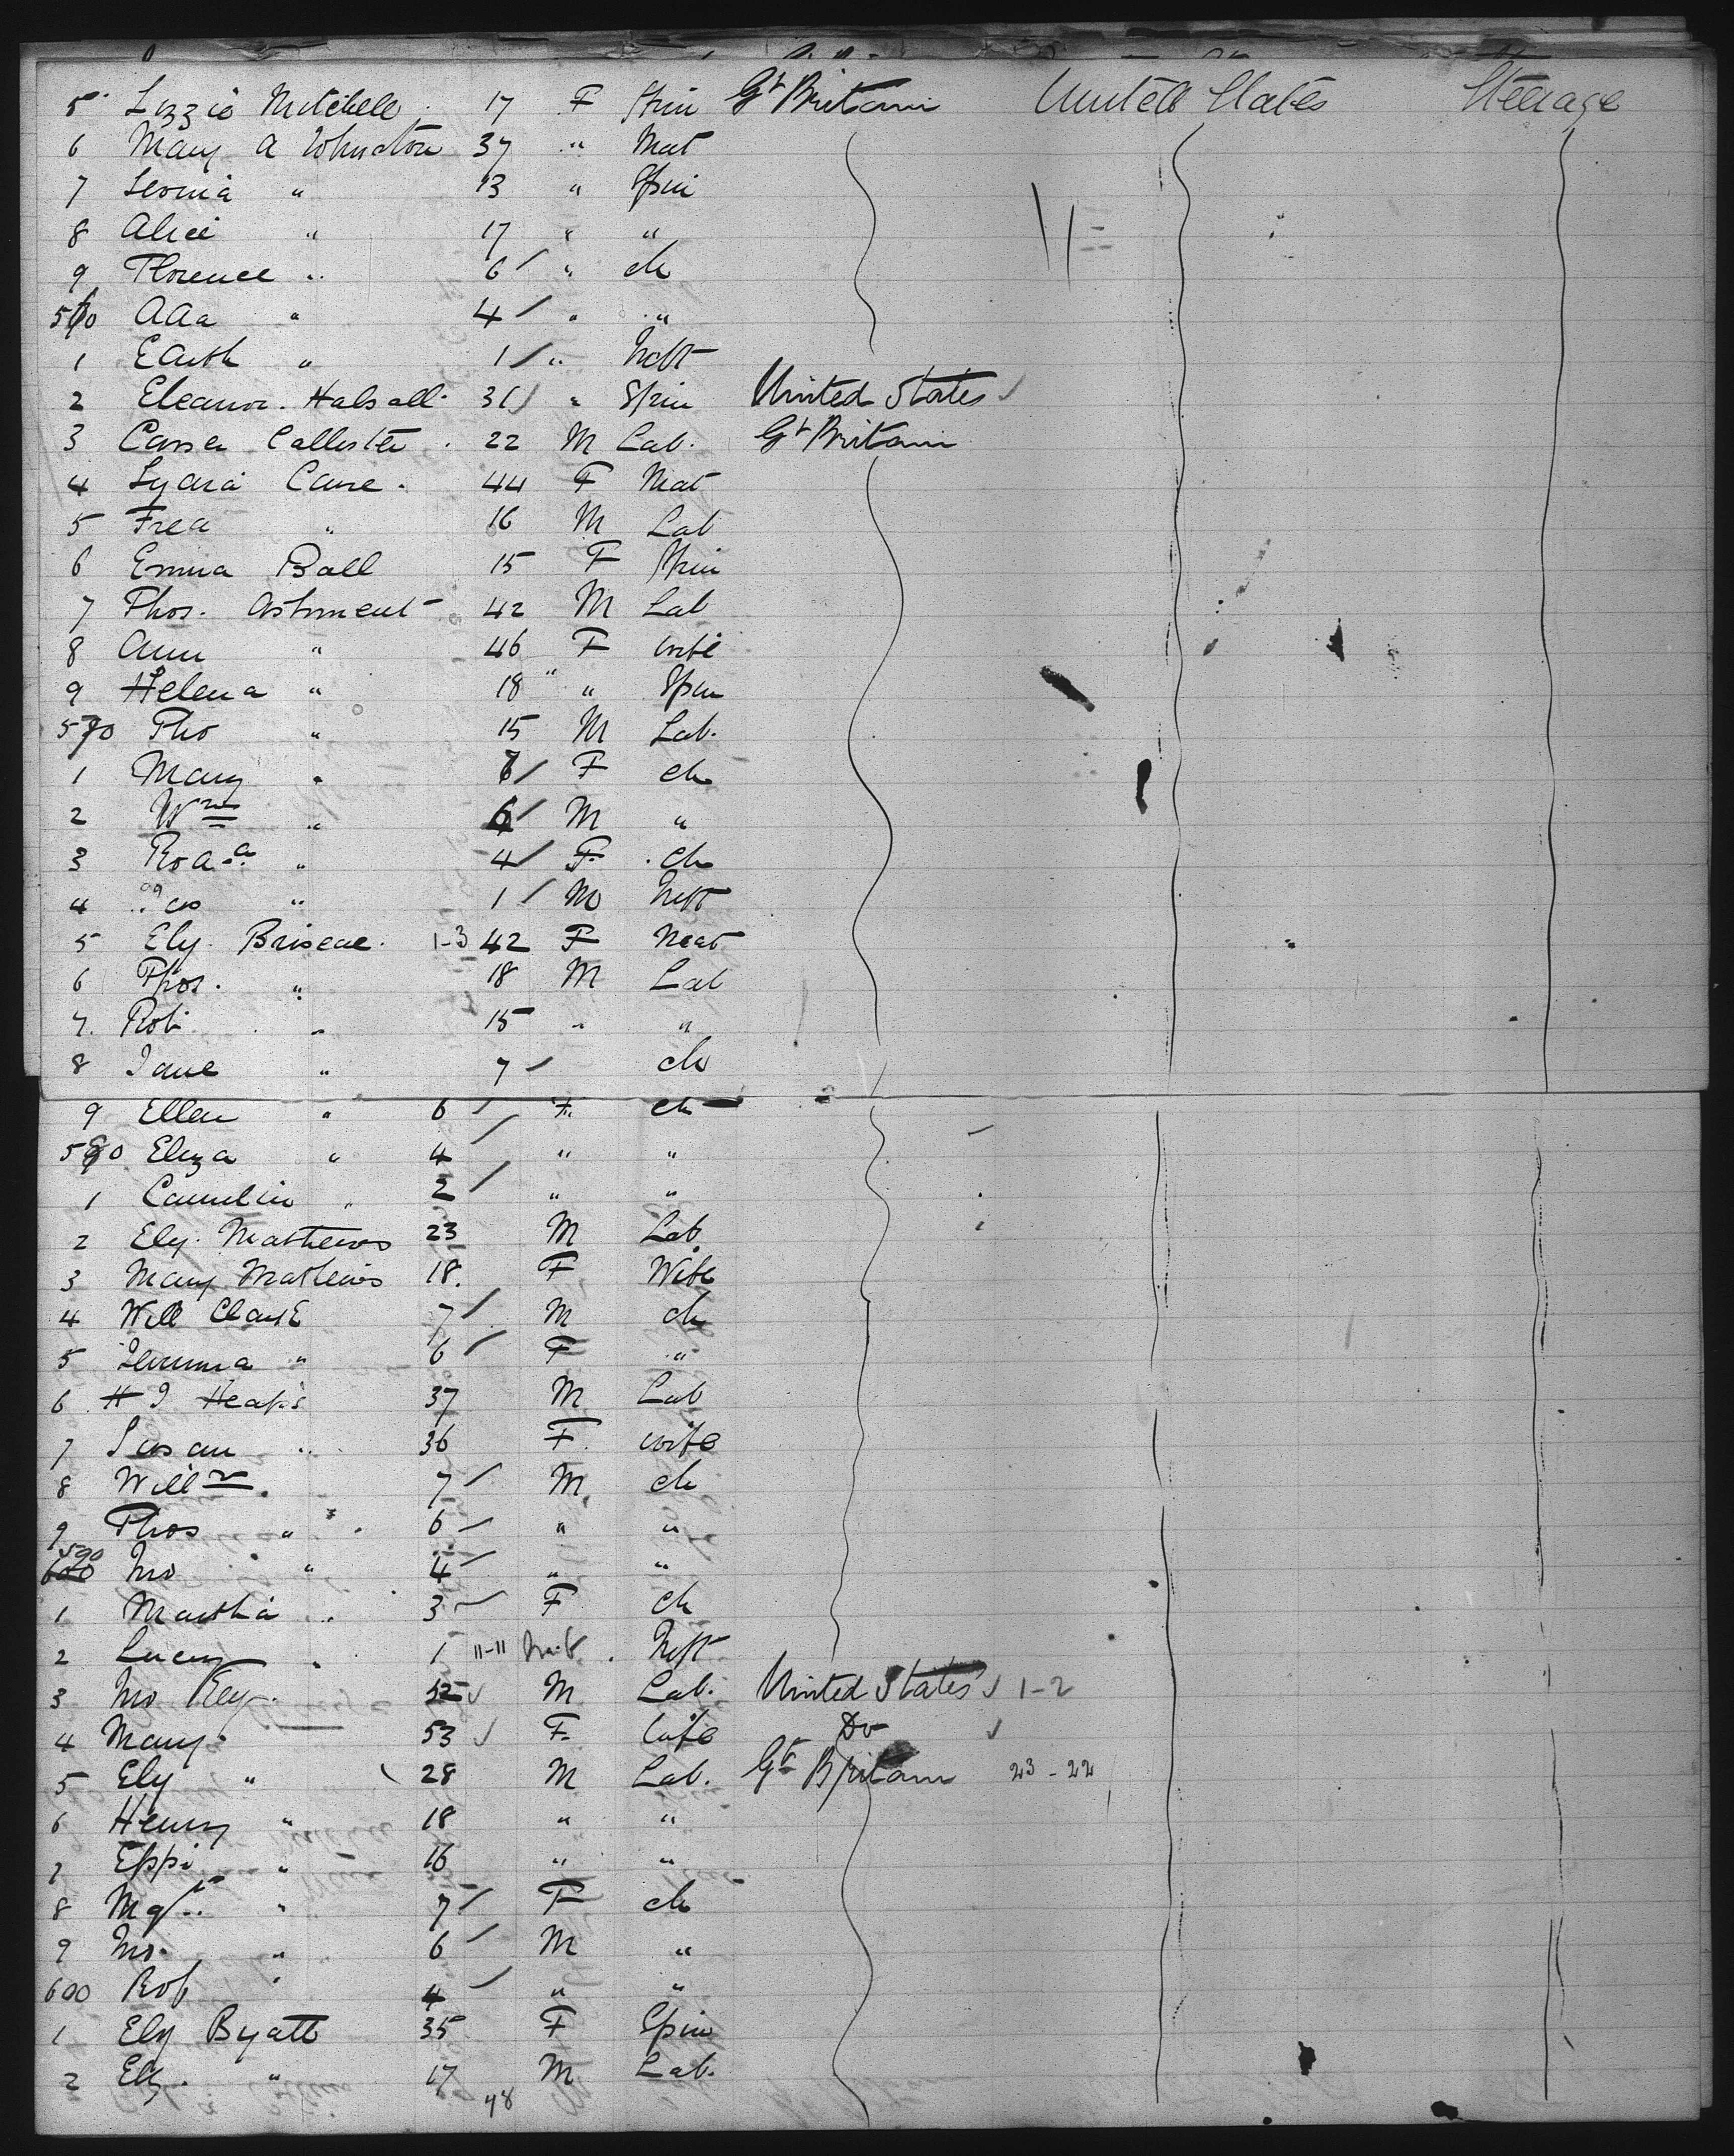 5 Lizzie Mitchell 17 F Spin Gt Britain United States Steerage
6 Mary A Johnston 37 " Mat
7 Leonia " 13 " Spin
8 Alice " 17 " "
9 Florence " 6 " ch
560 Ada " 4 " "
1 Edith " 1 " Inft
2 Eleanor Halsall 31 " Spin United States
3 Callister 22 M Lab. Gt Britain
4 Lydia Cane 44 F Mat
5 Fred " 16 M Lab
6 Emma Ball 15 F Spin
7 Thos. 42 M Lab
8 Ann " 46 F wife
9 Helena " 18 " Spin
570 Tho " 15 M Lab.
1 Mary " F ch
2 Wm " 6 M "
3 " 4 F ch
4 Jas " 1 M Inft
5 Ely. Briscoe. 1-3 42 F Mat
6 Thos. " 18 M Lab
7. Robt " 15 " "
8 Jane " 7 ch
9 Ellen " 6 F ch
580 Eliza " 4 " "
1 " 2 " "
2 Ely. Mathews 23 M Lab
3 Mary Mathews 18. F Wife
4 Will Clark 7 M ch
5 Jemima " 6 F "
6 H J Heaps 37 M Lab
7 Susan " 36 F wife
8 Willm " 7 M ch
9 Thos " 6 " "
590 Jno " 4 " "
1 Martha " 3 F ch
2 Lucy " 1 11-11 Inft
3 Jno 52 M Lab. United States 1-2
4 Mary " 53 F. Wife Do
5 Ely " 28 M Lab. Gt Britain 23-22
6 Henry " 18 " "
7 " 16 " "
8 Mgt " 7 F ch
9 Jno. " 6 M "
600 Rob " 4 " "
1 Ely Byatt 35 F Spin
2 " 17 M Lab.
48